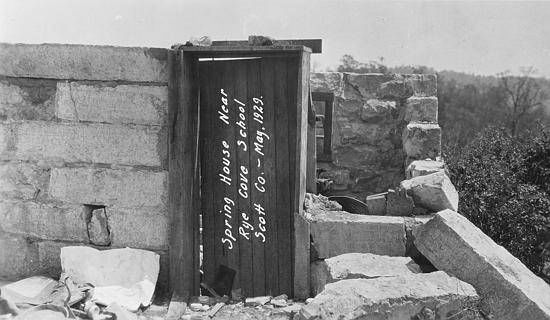 Spring House Near
Rye Cove School
Scott Co. - May, 1929.